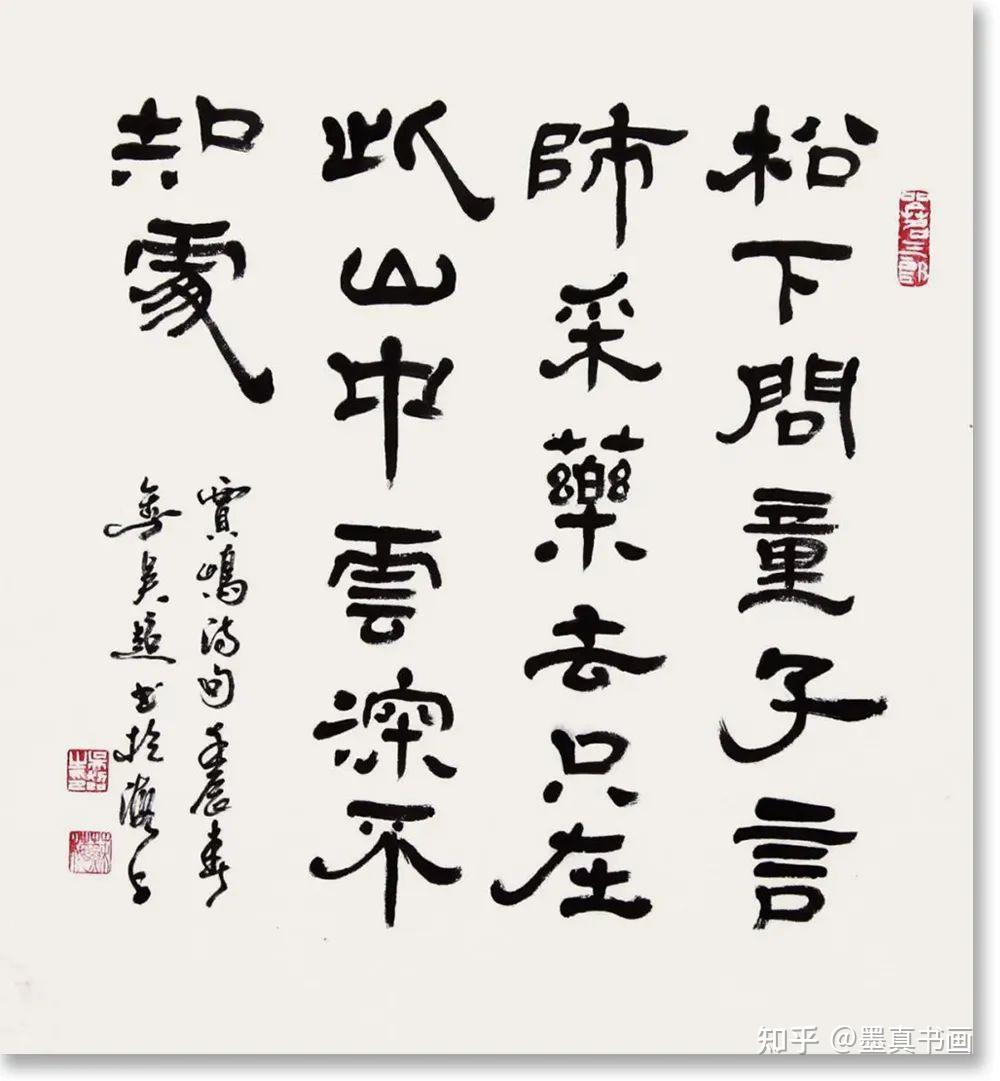 松下問童子言
師采藥去只在
此山中雲深不
知處
賈嶋詩句壬辰春
吳超書於上
知乎 @墨真书画